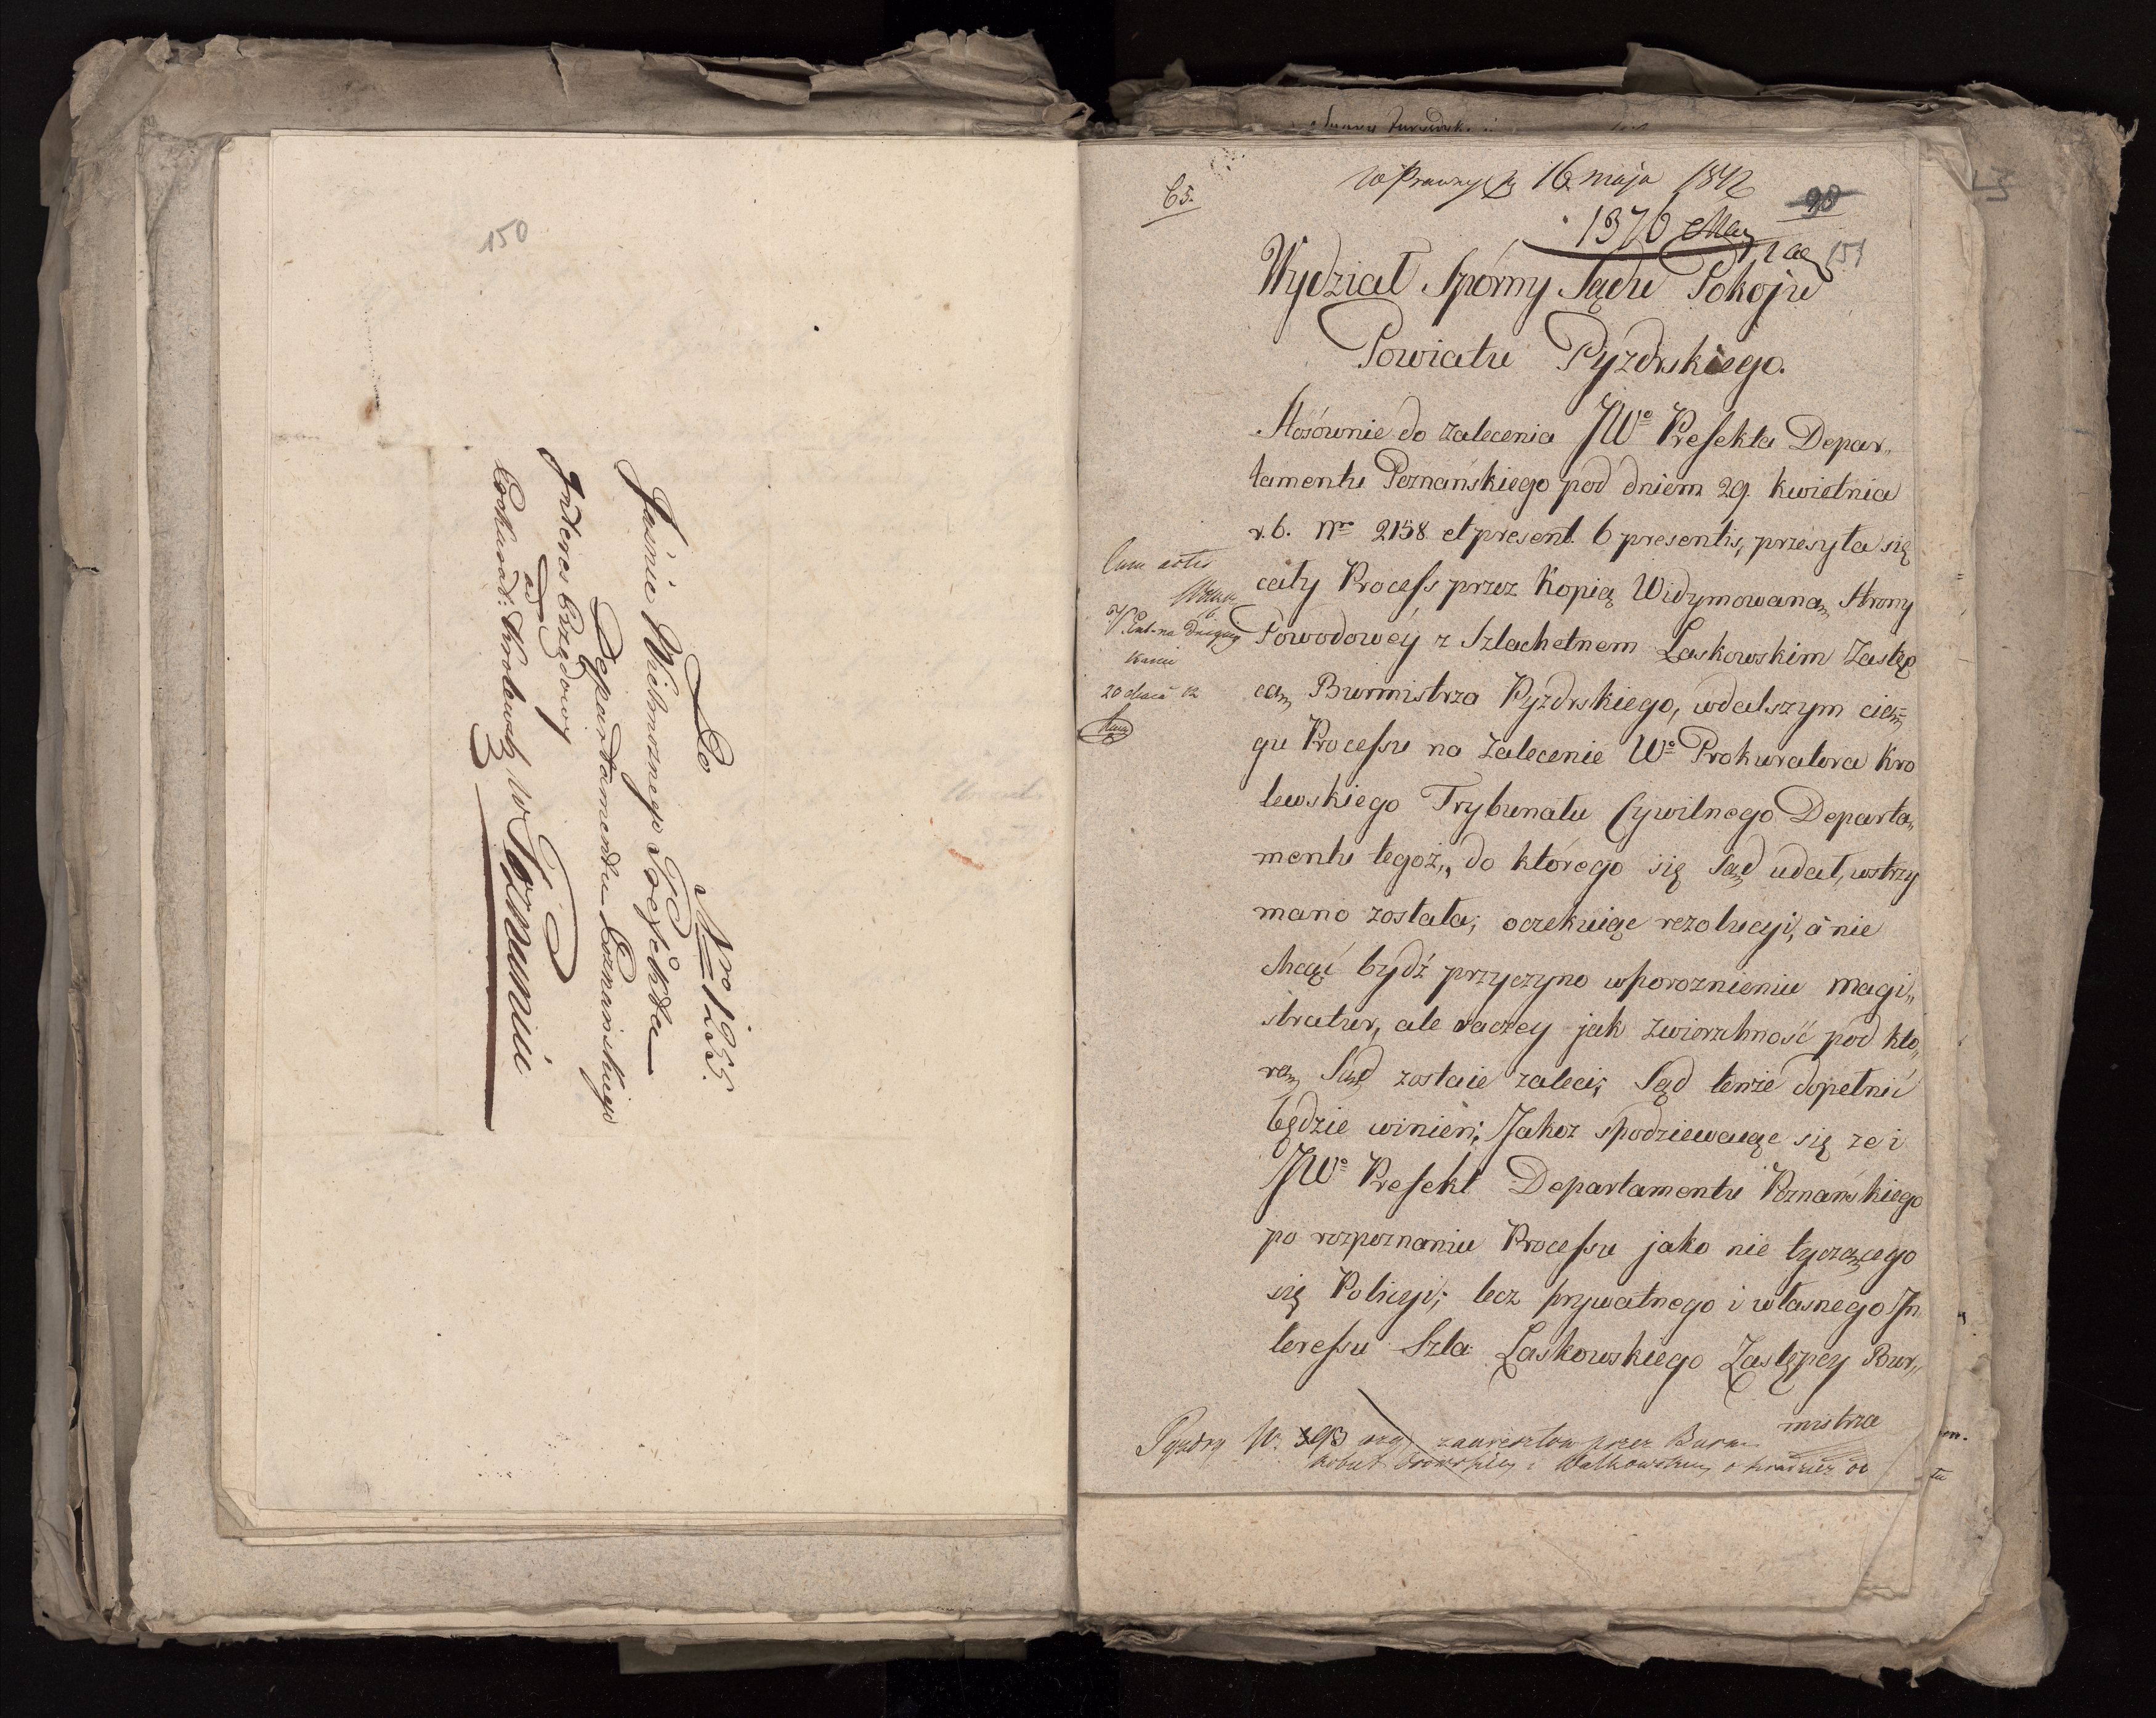 150
Nro 1255.
Do
Jaśnie Wielmoznego Prefekta
Departamentu Poznańskiego
Interes Urzędowy
w Poznaniu
65.
16 maja 1812
1376
90
151
Wydział Sporny Sądu Pokoju
Powiatu Pyzdrskiego.
Stosownie do zalecenia JWo Prefekta Depar„
tamentu Poznańskiego pod dniem 29. kwietnia
r. b. Nro 2158 et present. 6 presentis, przesyła się
cały Process przez Kopią Widymowaną Strony
Powodowey z Szlachetnem Laskowskim Zastęp
cą Burmistrza Pyzdrskiego, wdalszym cią=
gu Processu na zalecenie Wo Prokuratora Kro
lewskiego Trybunału Cywilnego Departa„
mentu tegoż„ do którego się Sąd udał, wstrzy
mano została; oczekuiąc rezolucyi, a nie
chcąc bydź przyczyno wporoznieniu magi„
stratur, ale raczey jak zwierzchność pod któ„
rą Sąd zostaie zaleci; Sąd tenże dopełnić
będzie winien; Jakoz spodziewaiąc się ze i
JWo Prefekt Departamentu Poznańskiego
po rozpoznaniu Processu jako nie tyczącego
się Policyi; lecz prywatnego i własnego In
teressu Szla: Laskowskiego Zastępcy Bur„
mistrza
Cum actis
20 12
Pyzdry przez